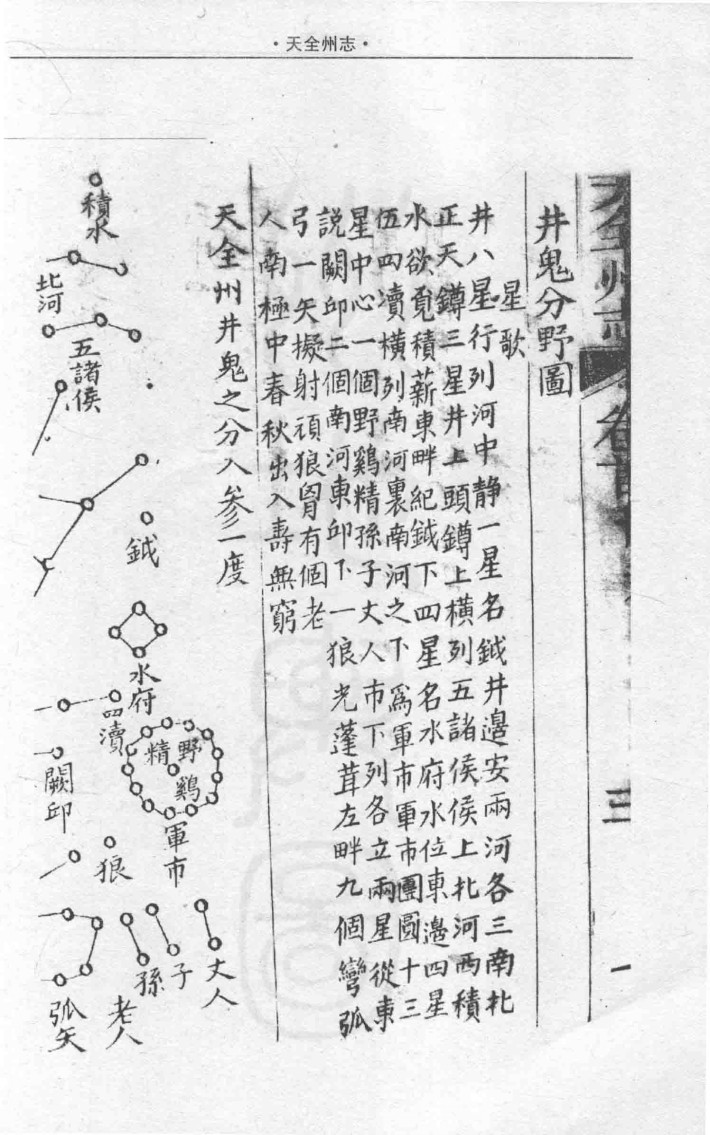 ・天全州志・
天全州志 卷首
三
一
井鬼分野圖
星歌
井八星行列河中静一星名鉞井邊安兩河各三南北
正天鐏三星井上頭鐏上橫列五諸侯侯上北河西積
水欲覓積薪東畔紀鉞下四星名水府水位東邊四星
伍四瀆橫列南河裏南河之下爲軍市軍市團圓十三
星中心一個野鷄精孫子丈人市下列各立兩星從東
說闕邱二個南河東邱下一狼光蓬茸左畔九個彎弧
弓一矢擬射頑狼胷有個老
人南極中春秋出入壽無窮
天全州井鬼之分入參一度
積水
北河
五諸侯
鉞
水府
四瀆
野鷄精
軍市
闕邱
狼
丈人
子
孫
老人
弧矢